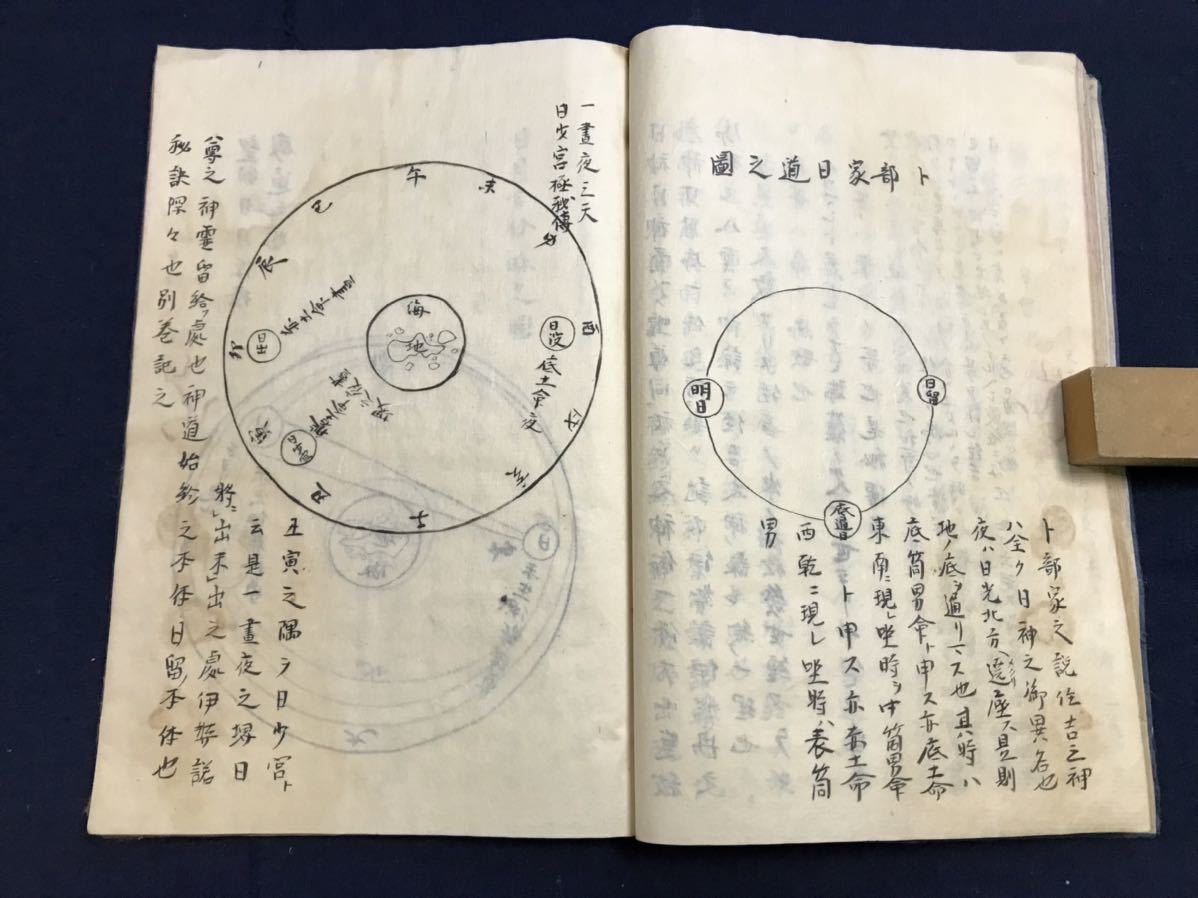 卜部家日道之圖
日留
明日
底筒
卜部家之説住吉之神
ハ全ク日神之御異名也
夜ハ日光北方ヘ遶座ス具則
地ノ底ヲ通リマス也其時ハ
底筒男命ト申ス亦底土命
東南ニ現レ坐時ヲ中筒男命
ト申ス亦赤土命
西乾ニ現レ坐時ハ表筒
男
一晝夜之天
日少宮極秘傳
午
未
申
酉
戌
亥
子
丑
寅
卯
辰
巳
日没
底土命夜
海
地
日出
赤土命晝
丑寅之隅ヲ日少宮ト
云是一晝夜之堺日
將ニ出未出之處伊弉諾
尊之神靈留給処也神道始終之本体日留本体也
秘訣深々也別巻記之